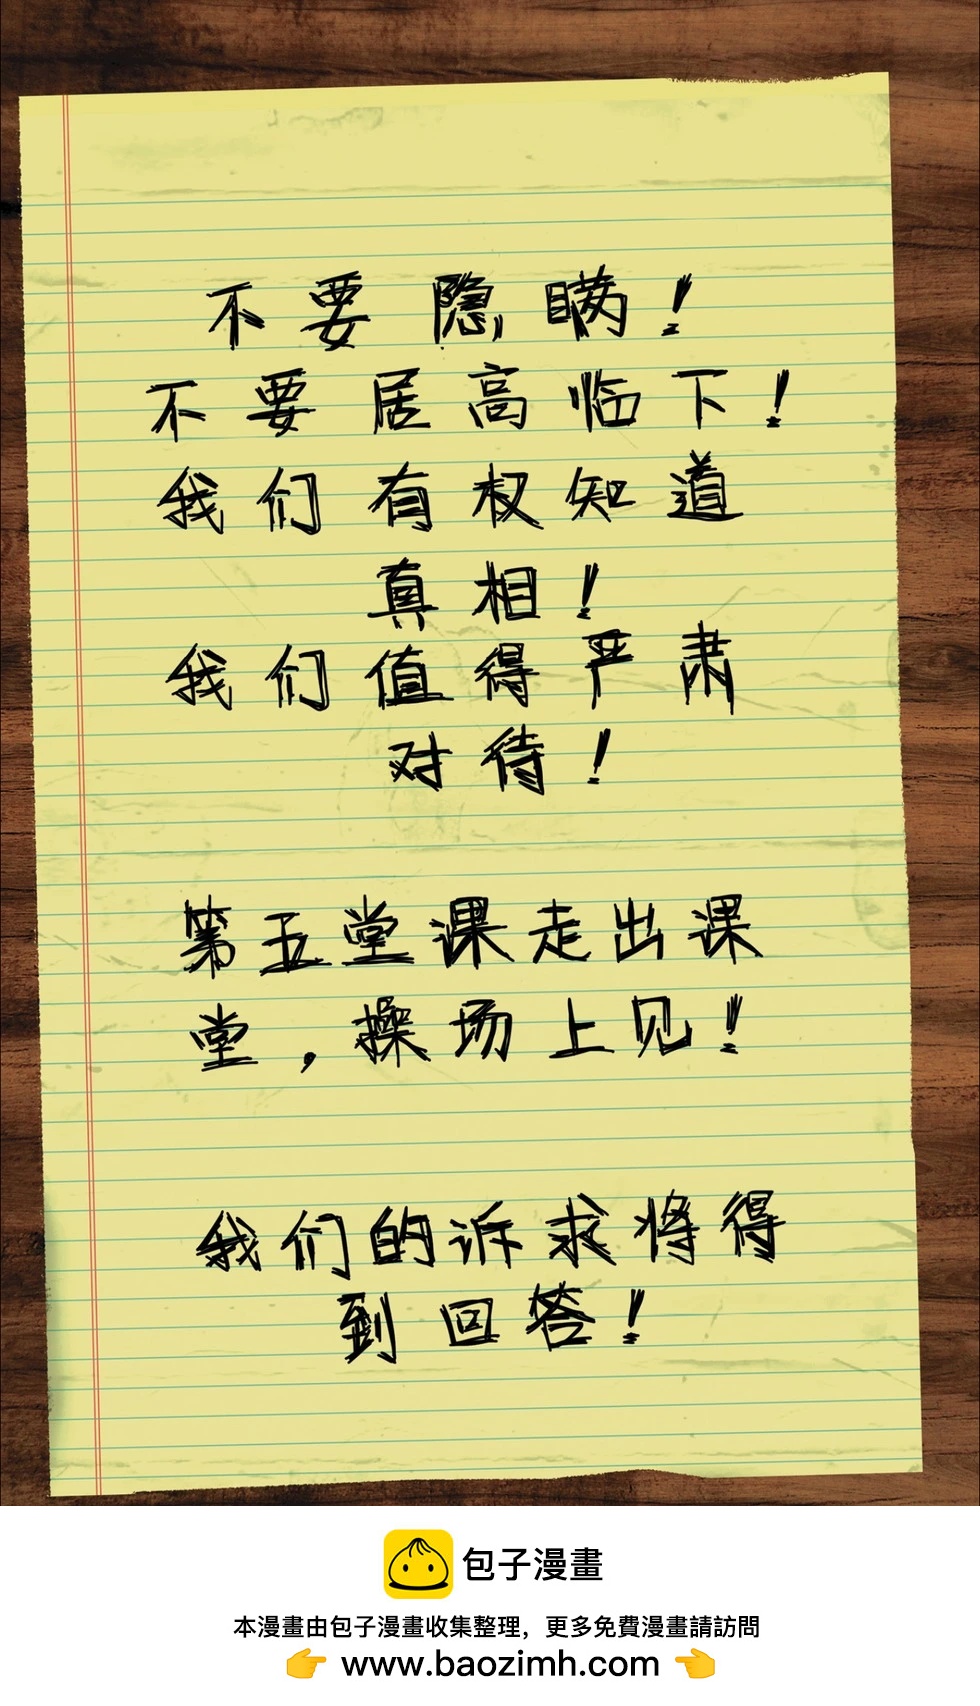 不要隐瞒！
不要居高临下！
我们有权知道
真相！
我们值得严肃
对待！
第五堂课走出课
堂，操场上见！
我们的诉求将得
到回答！
包子漫畫
本漫畫由包子漫畫收集整理，更多免費漫畫請訪問
www.baozimh.com